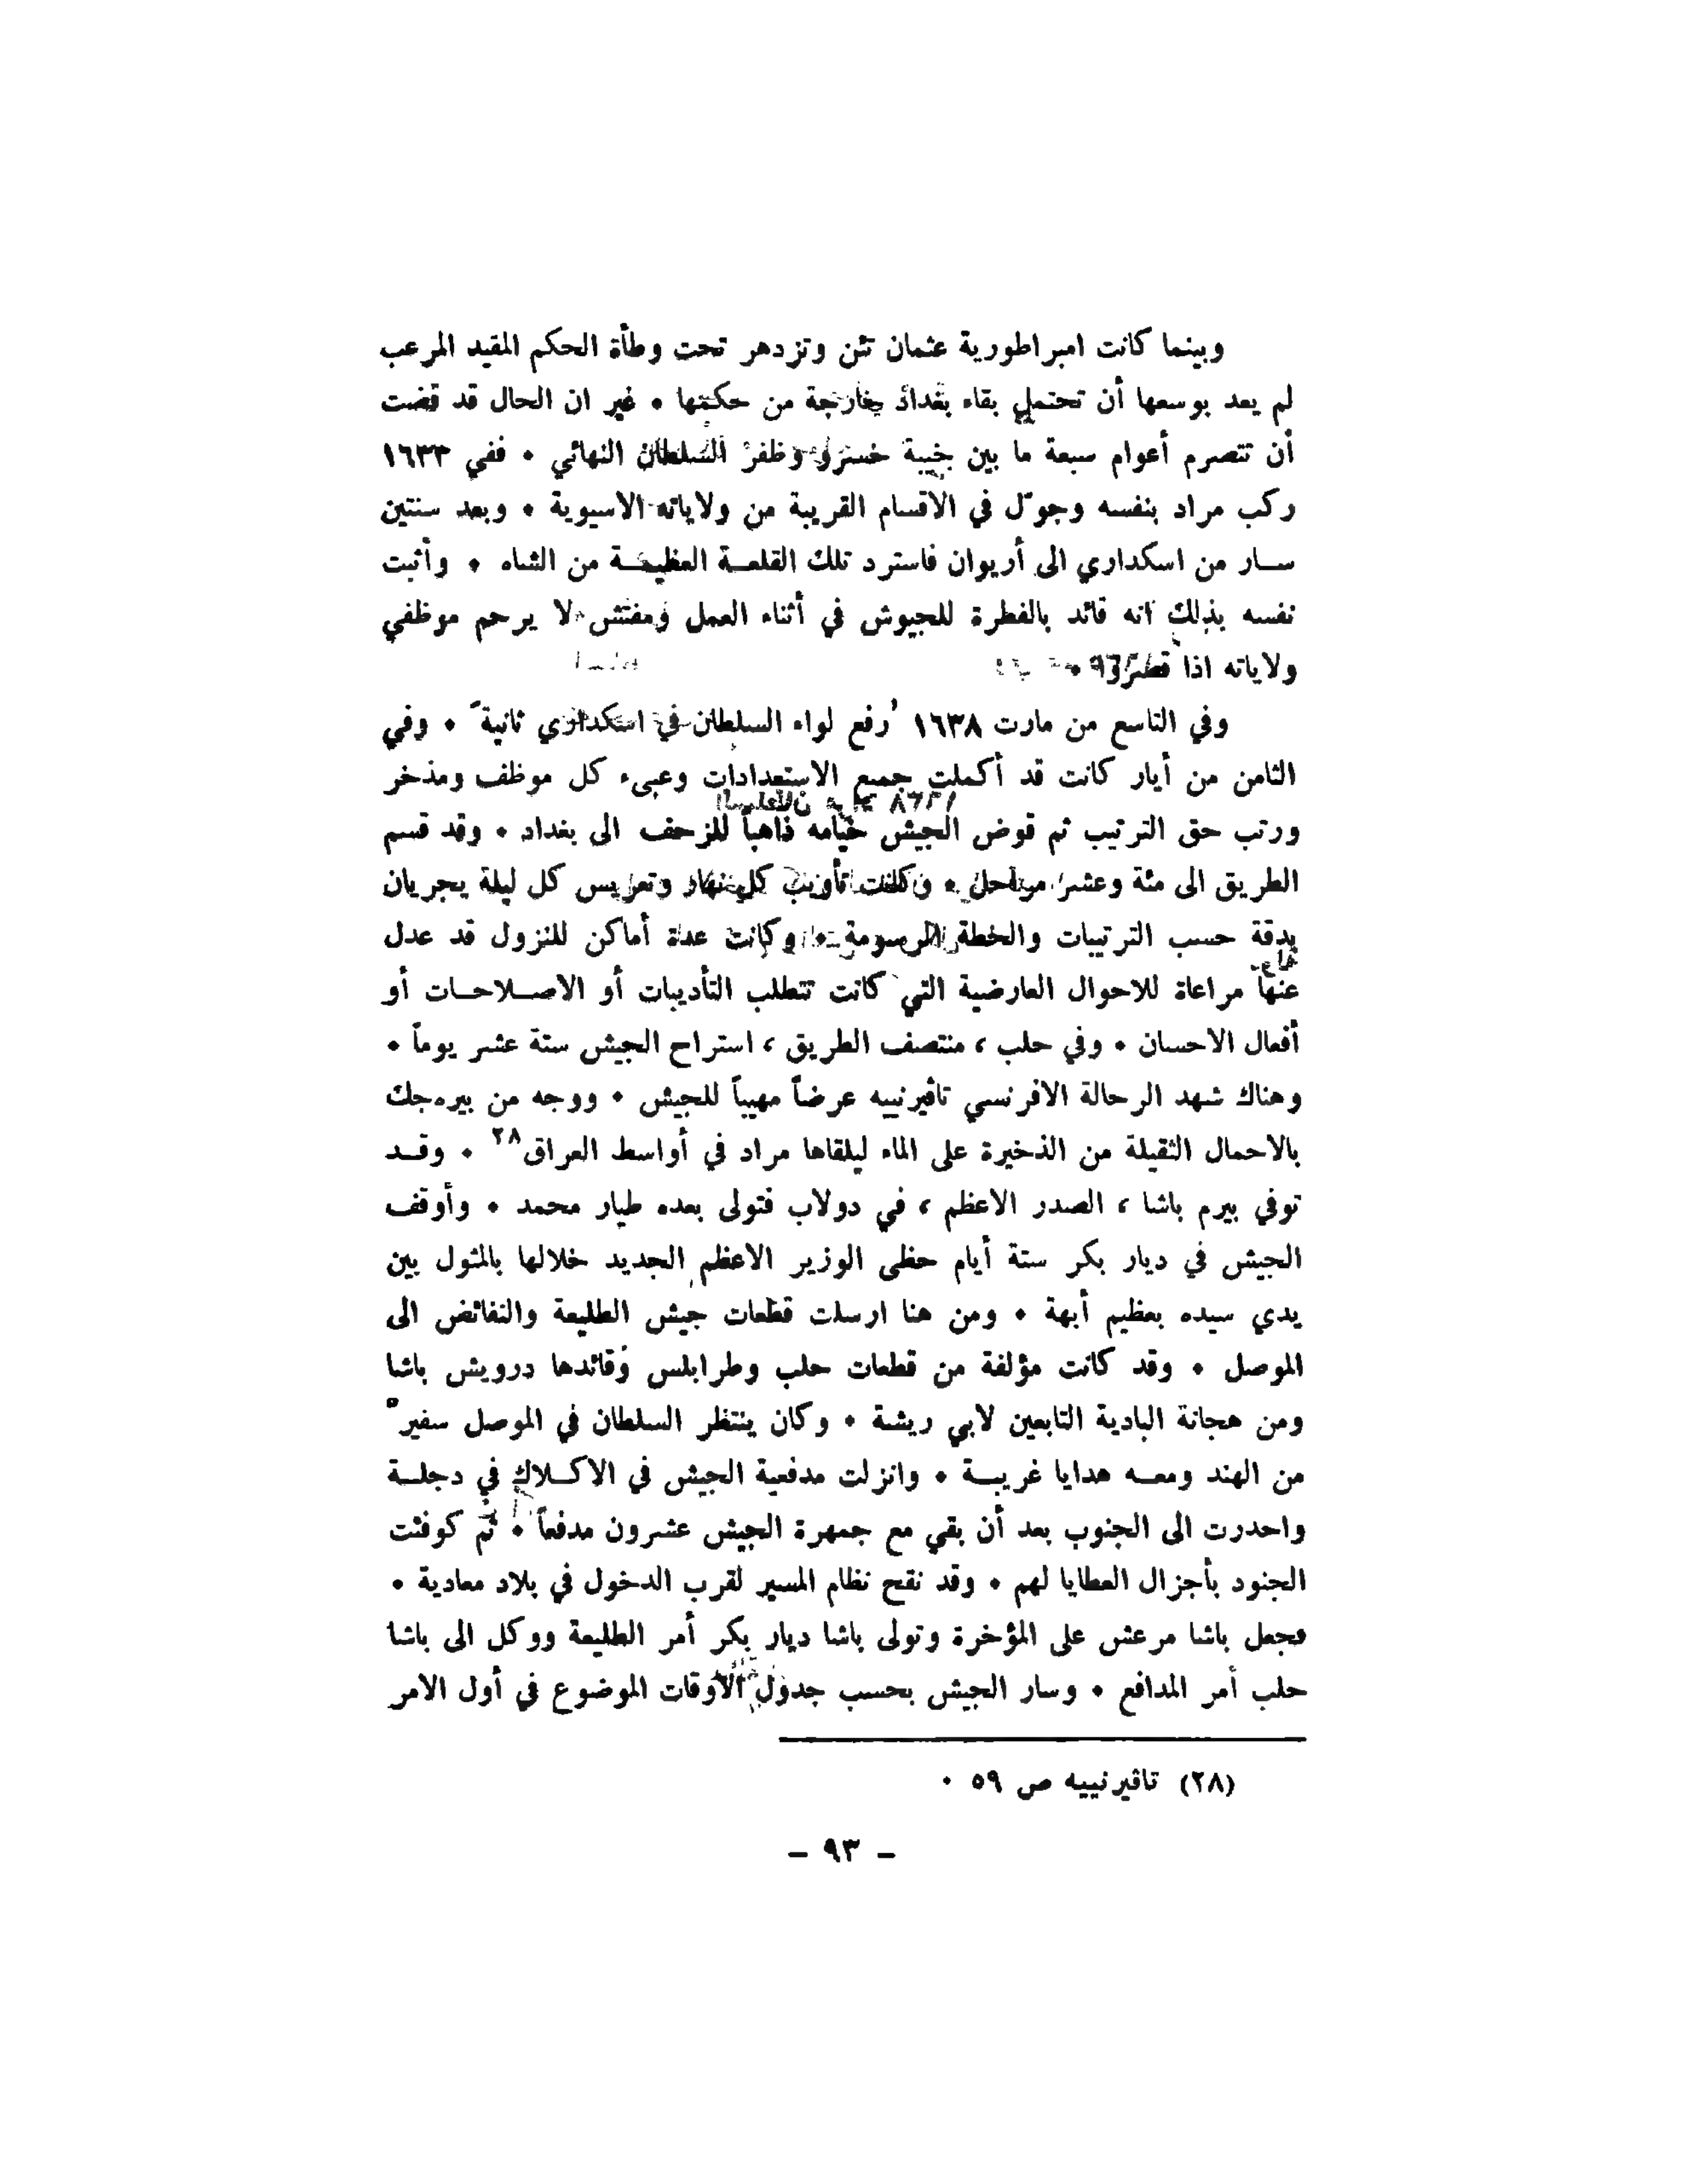 وبينما كانت امبراطورية عثمان تئن وتزدهر تحت وطأة الحكم المقيد المرعب
لم يعد بوسعها أن تحتمل بقاء بغداد خارجة من حكمها • غير ان الحال قد قضت
أن تتصرم أعوام سبعة ما بين خيبة خسرو وظفر السلطان النهائي • ففي ١٦٣٣
ركب مراد بنفسه وجوّل في الاقسام القريبة من ولاياته الاسيوية • وبعد سنتين
سـار من اسكداري الى أريوان فاسترد تلك القلعـة العظيمـة من الشاه • وأثبت
نفسه بذلك انه قائد بالفطرة للجيوش في أثناء العمل ومفتش لا يرحم موظفي
ولاياته اذا قصروا •
وفي التاسع من مارت ١٦٣٨ رُفع لواء السلطان في اسكداري ثانيةً • وفي
الثامن من أيار كانت قد أكملت جميع الاستعدادات وعبىء كل موظف ومذخر
ورتب حق الترتيب ثم قوض الجيش خيامه ذاهباً للزحف الى بغداد • وقد قسم
الطريق الى مئة وعشر مراحل • وكانت تأويب كل نهار وتعريس كل ليلة يجريان
بدقة حسب الترتيبات والخطة المرسومة • وكانت عدة أماكن للنزول قد عدل
عنها مراعاة للاحوال العارضية التي كانت تتطلب التأديبات أو الاصـلاحـات أو
أفعال الاحسان • وفي حلب ، منتصف الطريق ، استراح الجيش ستة عشر يوماً •
وهناك شهد الرحالة الافرنسي تاڤيرنييه عرضاً مهيباً للجيش • ووجه من بيره‌جك
بالاحمال الثقيلة من الذخيرة على الماء ليلقاها مراد في أواسط العراق٢٨ • وقـد
توفي بيرم باشا ، الصدر الاعظم ، في دولاب فتولى بعده طيار محمد • وأوقف
الجيش في ديار بكر ستة أيام حظى الوزير الاعظم الجديد خلالها بالمثول بين
يدي سيده بعظيم أبهة • ومن هنا ارسلت قطعات جيش الطليعة والنفائض الى
الموصل • وقد كانت مؤلفة من قطعات حلب وطرابلس وقائدها درويش باشا
ومن هجانة البادية التابعين لابي ريشة • وكان ينتظر السلطان في الموصل سفيرٌ
من الهند ومعـه هدايا غريبـة • وانزلت مدفعية الجيش في الاكـلاك في دجلـة
واحدرت الى الجنوب بعد أن بقي مع جمهرة الجيش عشرون مدفعاً • ثم كوفئت
الجنود بأجزال العطايا لهم • وقد نقح نظام المسير لقرب الدخول في بلاد معادية •
فجعل باشا مرعش على المؤخرة وتولى باشا ديار بكر أمر الطليعة ووكل الى باشا
حلب أمر المدافع • وسار الجيش بحسب جدول الاوقات الموضوع في أول الامر
(٢٨) تاڤيرنييه ص ٥٩ •
– ٩٣ –